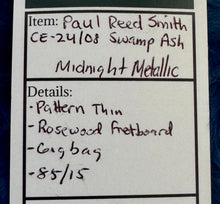 Item: Paul Reed Smith
CE-24/08 Swamp Ash
Midnight Metallic
Details:
-Pattern Thin
-Rosewood Fretboard
-Gigbag
-85/15